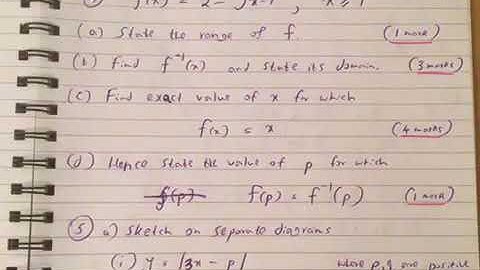 f(x) = 2 - √x-1 , x ≥ 1
(a) State the range of f. (1 mark)
(b) Find f⁻¹(x) and state its domain. (3 marks)
(c) Find exact value of x for which
f(x) = x (4 marks)
(d) Hence state the value of p for which
f(p) f(p) = f⁻¹(p) (1 mark)
(5) a) Sketch on separate diagrams
(i) y = |3x - p| where p, q are positive